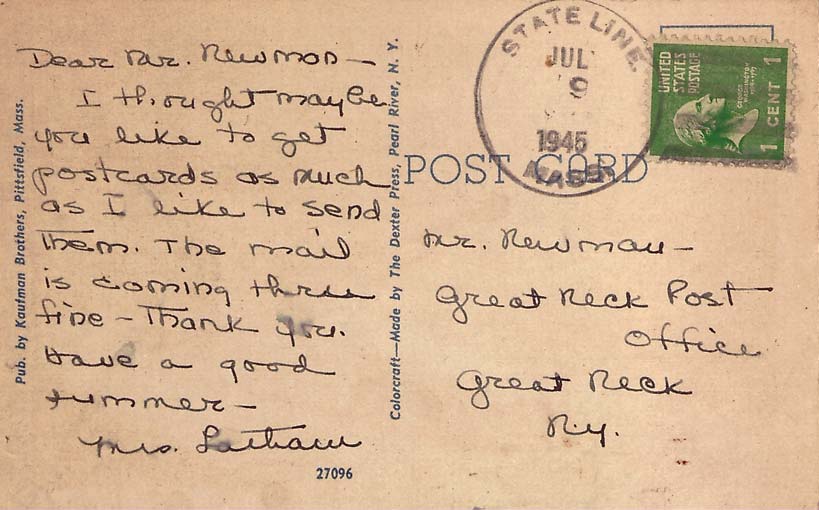 Dear Mr. Newman—
I thought maybe
you like to get
postcards as much
as I like to send
them. The mail
is coming thru
fine – Thank you.
Have a good
summer—
Mrs. Latham
Pub. by Kaufman Brothers, Pittsfield, Mass.
Colorcraft—Made by The Dexter Press, Pearl River, N. Y.
27096
POST CARD
STATE LINE.
JUL
9
1945
MASS.
UNITED
STATES
POSTAGE
GEORGE
WASHINGTON
1 CENT 1
Mr. Newman—
Great Neck Post
Office
Great Neck
N.Y.